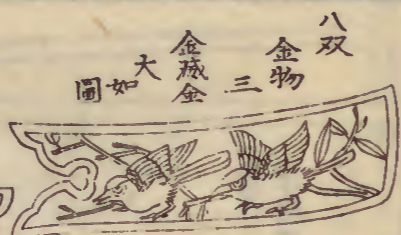 八双
金物
三
金滅金
大
如
圖